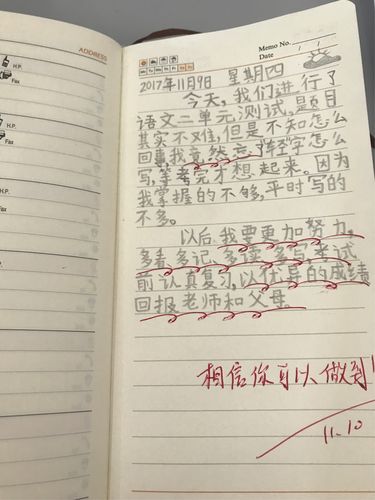 ADDRESS
H.P.
Fax
H.P.
Fax
H.P.
Fax
Memo No.
Date / /
Mo Tu We Th Fr Sa Su
2017年11月9日 星期四
今天,我们进行了
语文二单元测试,题目
其实不难,但是不知怎么
回事,我竟然忘了轻字怎么
写,等考完才想起来。因为
我掌握的不够,平时写的
不多。
以后,我要更加努力,
多看、多记、多读、多写,考试
前认真复习,以优异的成绩
回报老师和父母。
相信你可以做到!
11.10